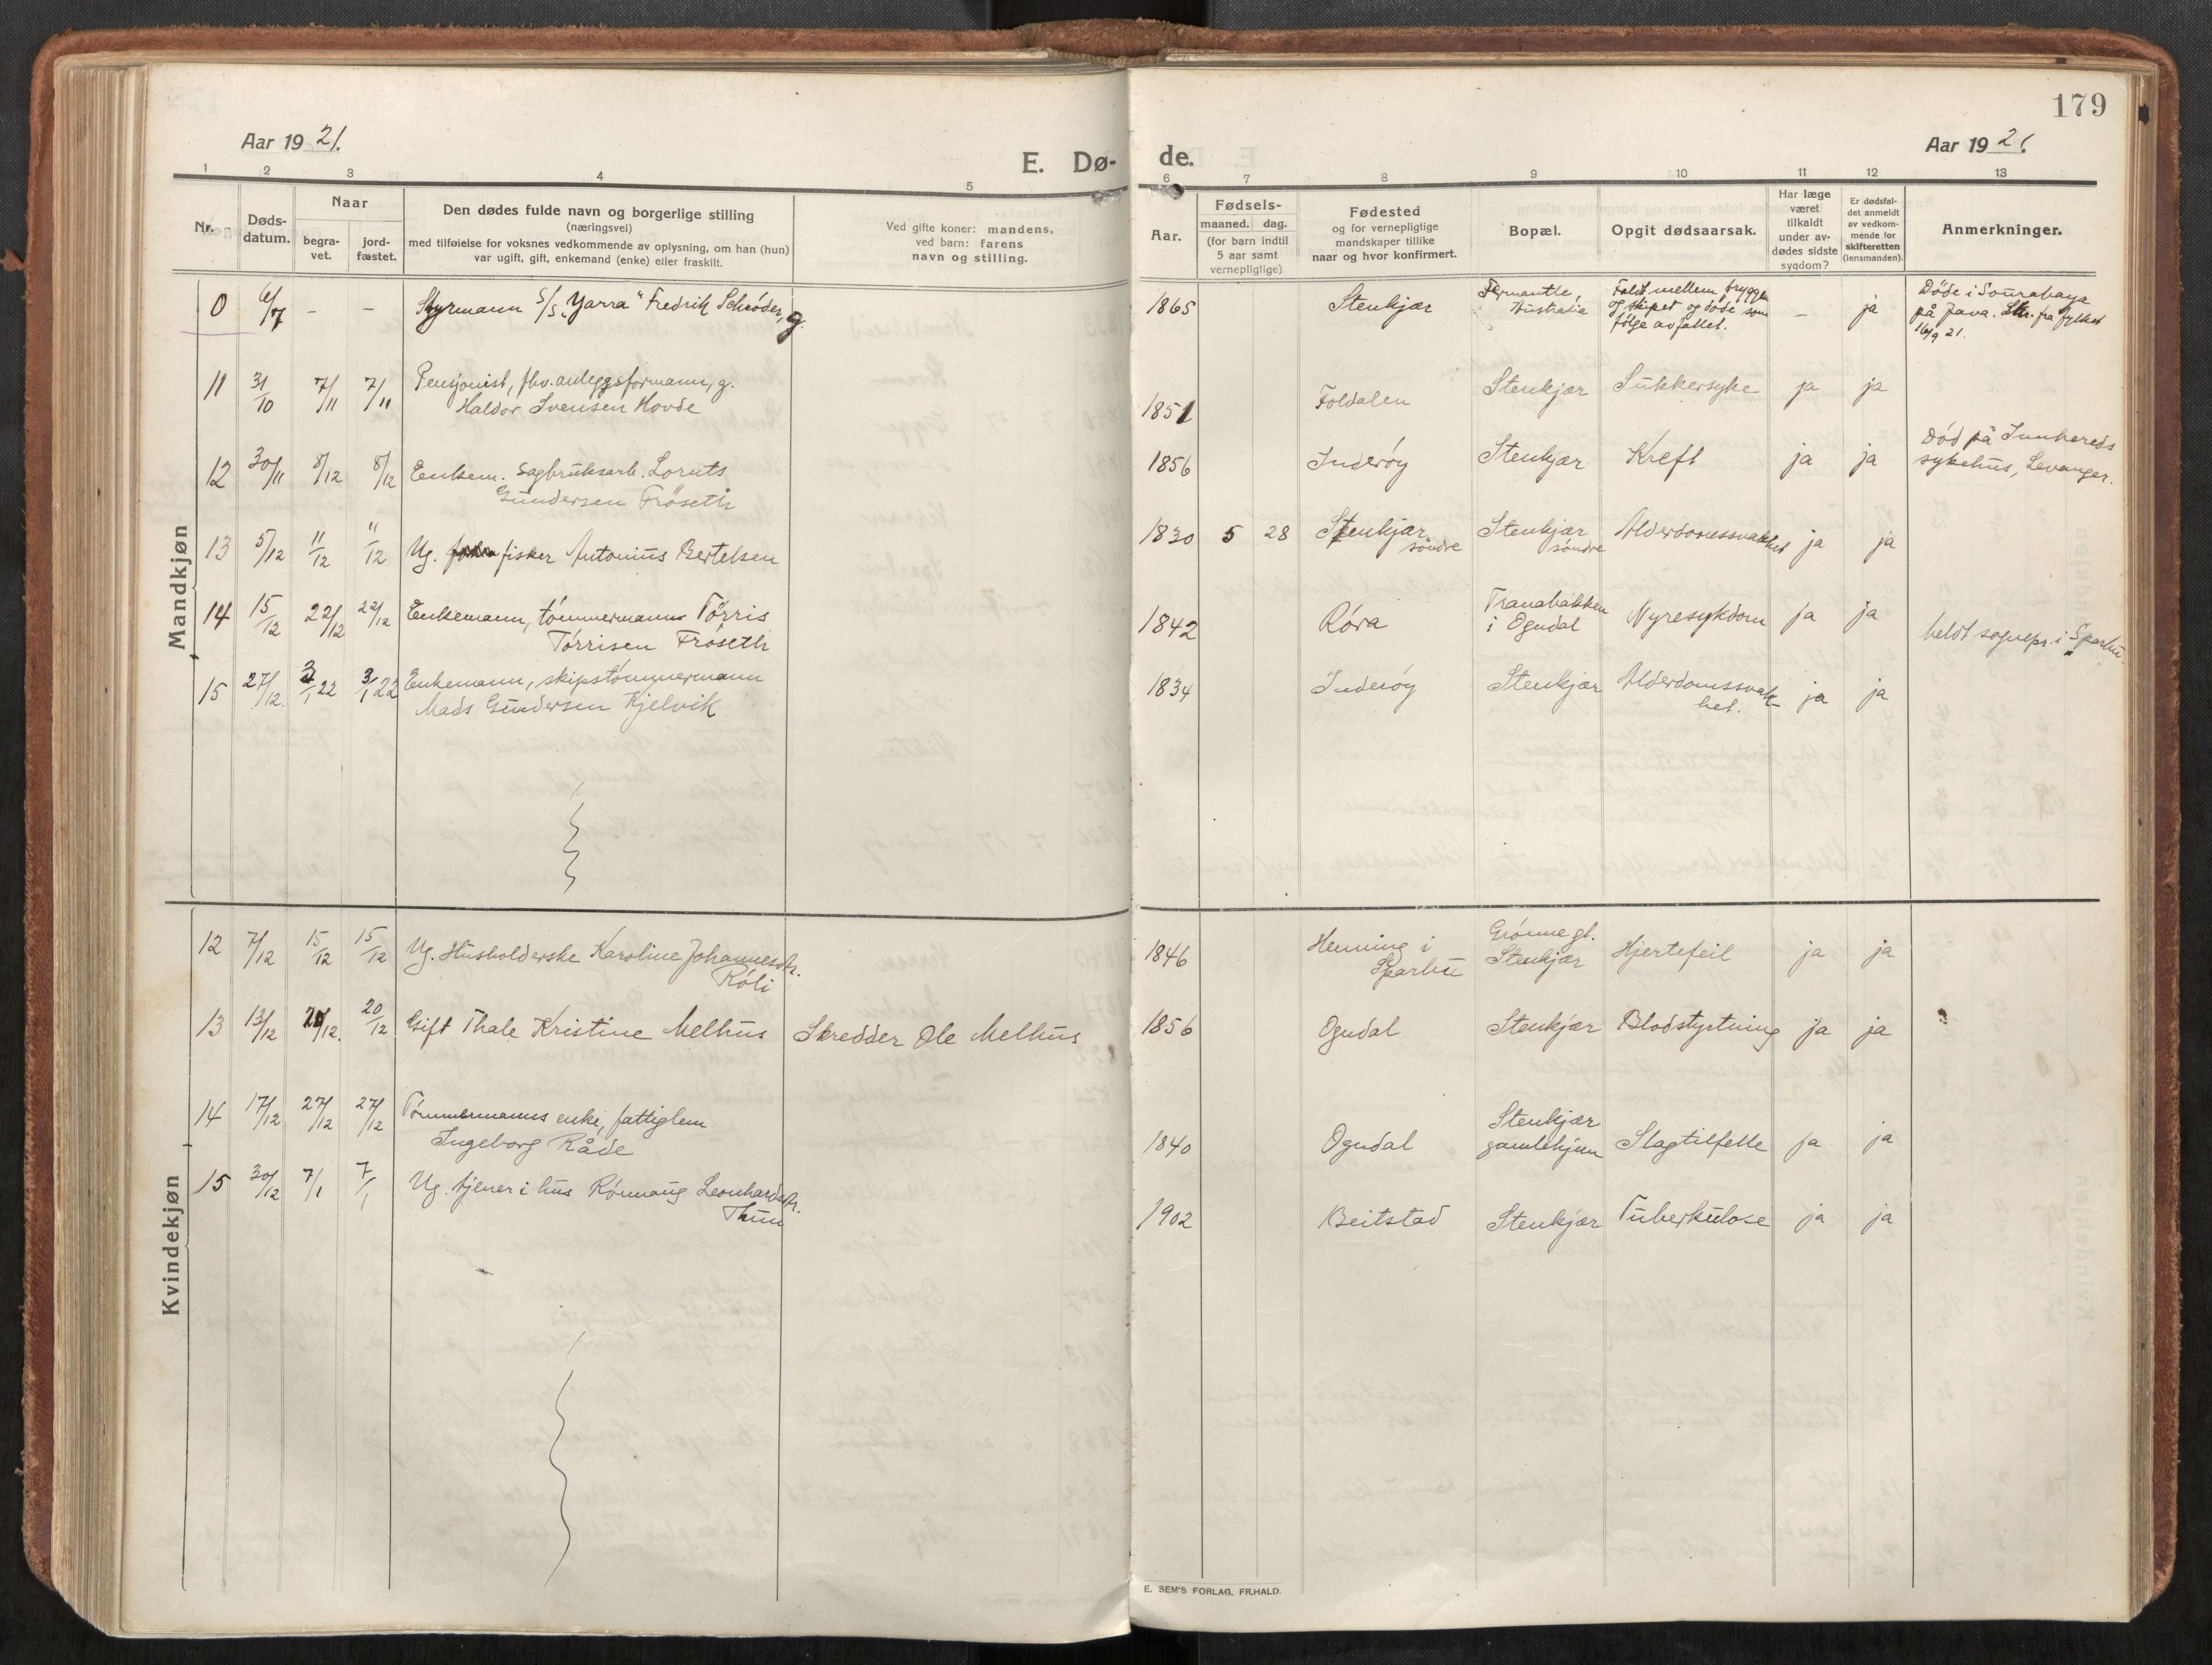 179
Aar 1921.
E. Dø-
de.
Aar 1921.
1 2 3 4 5 6 7 8 9 10 11 12 13
Nr.
Døds-
datum.
Naar
begra-
vet.
jord-
fæstet.
Den dødes fulde navn og borgerlige stilling
(næringsvei)
med tilføielse for voksnes vedkommende av oplysning, om han (hun)
var ugift, gift, enkemand (enke) eller fraskilt.
Ved gifte koner: mandens,
ved barn: farens
navn og stilling.
Aar.
Fødsels-
maaned. dag.
(for barn indtil
5 aar samt
vernepligtige)
Fødested
og for vernepligtige
mandskaper tillike
naar og hvor konfirmert.
Bopæl.
Opgit dødsaarsak.
Har læge
været
tilkaldt
under av-
dødes sidste
sygdom?
Er dødsfal-
det anmeldt
av vedkom-
mende for
skifteretten
(lensmanden).
Anmerkninger.
Mandkjøn
0 6/7 - - Styrmann S/S „Yarra" Fredrik Schrøder, g.
1865 Stenkjær
Fermantle,
Australia
Faldt mellem bryggen
og skipet og døde som
følge av fallet.
- ja
Døde i Sourabaya
på Java. Skr. fra fylket
16/9 21.
11 31/10 7/11 7/11 Pensjonist, fhv. anleggsformann, g.
Haldor Svensen Hovde
1851 Foldalen Stenkjær Sukkersyke ja ja
12 30/11 8/12 8/12 Enkem. Sagbruksarb. Loruts
Gundersen Frøseth
1856 Inderøy Stenkjær Kreft ja ja
Død på Innhereds
sykehus, Levanger.
13 5/12 11/12 11/12 Ug. fisker Antonius Bertelsen
1830 5 28 Stenkjær
søndre
Stenkjær
søndre
Alderdomssvakhet ja ja
14 15/12 22/12 22/12 Enkemann, tømmermann Tørris
Tørrisen Frøseth
1842 Røra
Tranabakken
i Ogndal
Nyresykdom ja ja
heldt sognepr. i Sparbu.
15 27/12. 3/1 22 3/1 22 Enkemann, skipstømmermann
Mads Gundersen Kjelvik
1834 Inderøy Stenkjær Alderdomssvak-
het.
ja ja
Kvindekjøn
12 7/12 15/12 15/12 Ug. Husholderske Karoline Johannesdtr.
Røli
1846 Henning i
Sparbu
Grønnegt.
Stenkjær
Hjertefeil ja ja
13 13/12 20/12. 20/12 Gift Thale Kristine Melhus Skredder Ole Melhus
1856 Ogndal Stenkjær Blodstyrtning ja ja
14 17/12 27/12 27/12 Tømmermanns enke, fattiglem
Ingeborg Råde
1840 Ogndal
Stenkjær
gamlehjem
Slagtilfelle ja ja
15 30/12 7/1 7/1 Ug. tjener i hus Rønnaug Leonhardsdtr.
Thun
1902 Beitstad Stenkjær Tuberkulose ja ja
E. SEM'S FORLAG, FR.HALD.